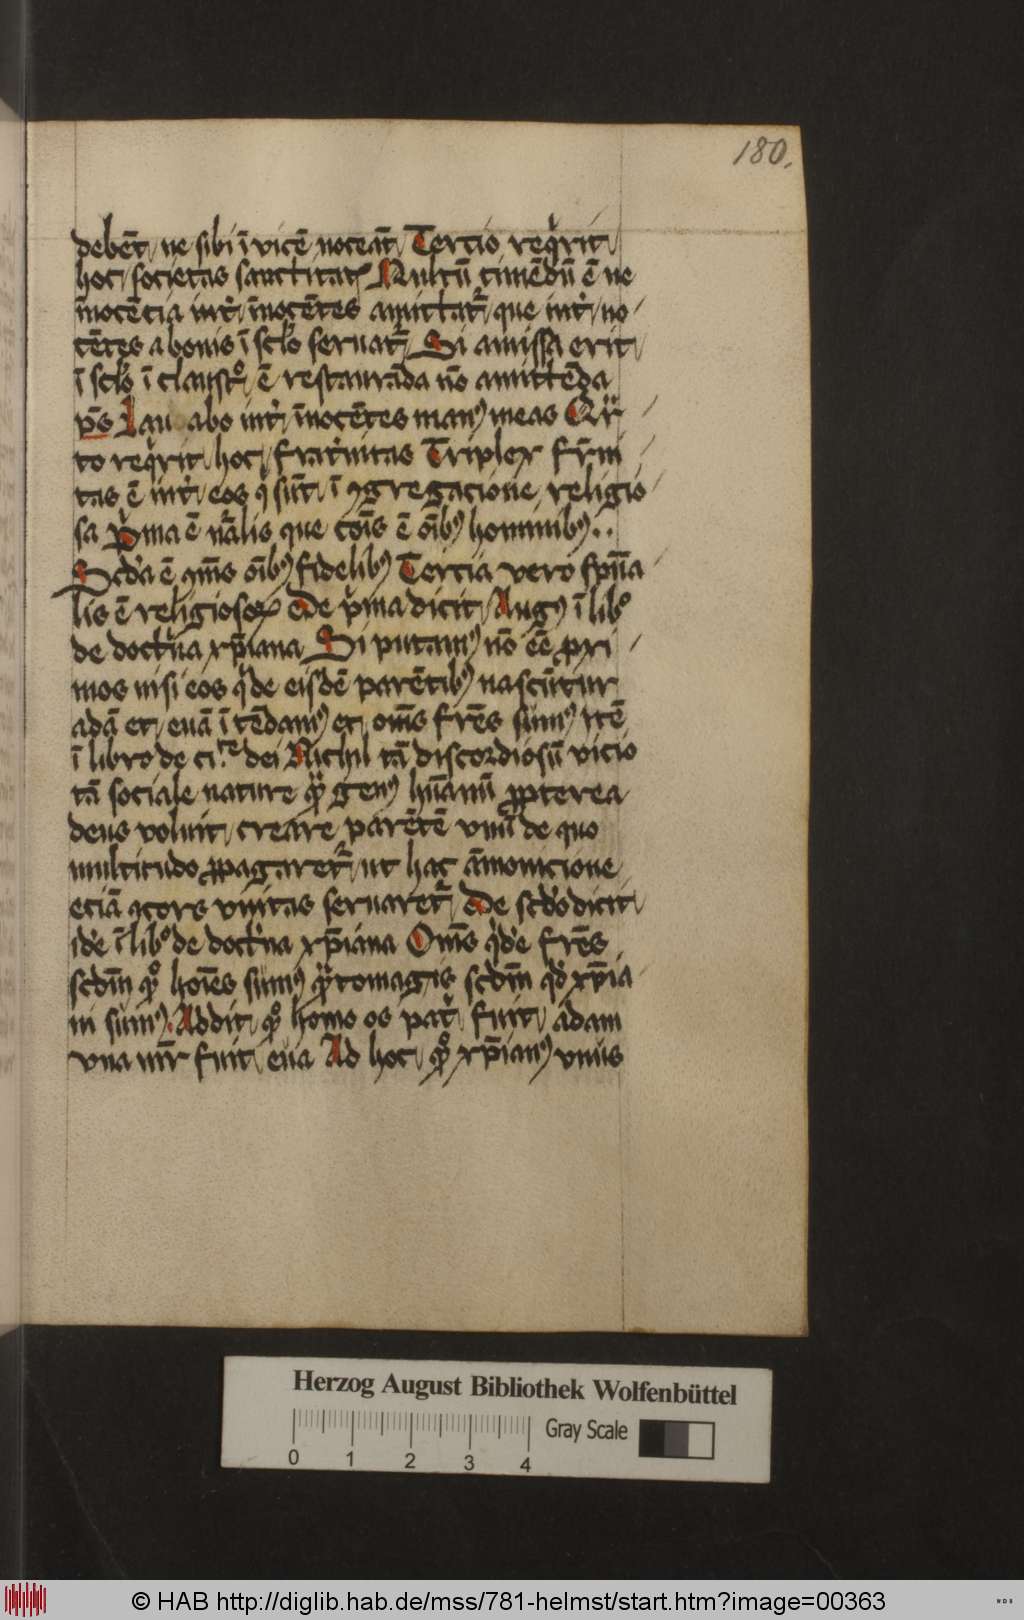 180.
debēt ne sibi ī vicē noceāt Tercio reqͥrit
hoc societas sanctitatꝭ Multū timēdū ē ne
īnocēcia int̉ īnocētes amittat᷑ que int̉ no-
cētes a bonis ī sclo seruat᷑ Si amissa erit
ī sclo ī claustͦ ē restaurāda nō amittēda
p̄s Lauabo int̉ īnocētes manꝰ meas Qᷓr-
to reqͥrit hoc frat̉nitas Triplex frᷓni-
tas ē int̉ eos qͥ sūt ī ꝯgregacione religio-
sa Pͥma ē nᷓlis que cōis ē oībꝰ hominibꝰ..
Scd̓a ē ꝯīs oībꝰ fidelibꝰ Tercia vero spūa-
lis ē religiosoꝝ De pͥma dicit Augꝰ ī libͦ
de doct̓na xp̄iana Si putamꝰ nō eē ꝓxi-
mos nisi eos qͥ de eisdē parētibꝰ nascūtur
adā et euā ītēdamꝰ et om̄s fr̄es sumꝰ Itē
ī libro de ciᵗᵉ dei Nichil tā discordiosū vicio
tā sociale nature qᷓ genꝰ hūanū ꝓpterea
deus voluit creare parētē vnū de quo
multitudo ꝓpagaret᷑ ut hac āmonicione
eciā ꝯcors vnitas seruaret᷑ De scd̓o dicit
idē ī libͦ de doct̓na xp̄iana Om̄s qͥdē fr̄es
scdm̄ qͦ hoīes sumꝰ qᷓntomagis scdm̄ qd̓ xp̄ia-
ni sumꝰ. Addit qͦ homo os pat̉ fuit adam
vna mr̄ fuit eua Ad hoc qͦ xp̄ianꝰ vnus
Herzog August Bibliothek Wolfenbüttel
Gray Scale
0 1 2 3 4
© HAB http://diglib.hab.de/mss/781-helmst/start.htm?image=00363